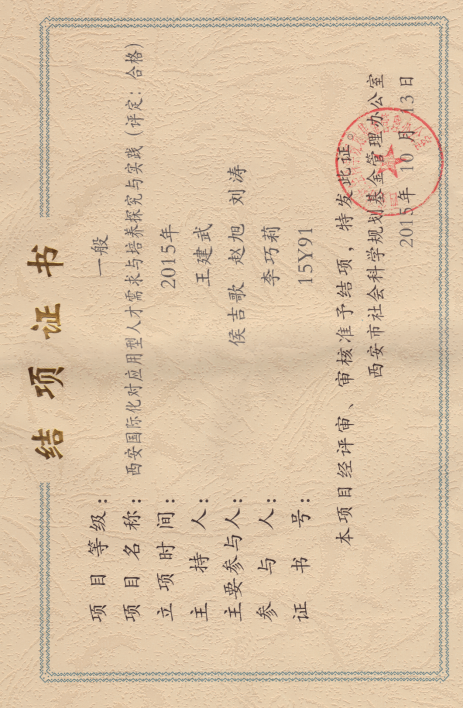 结项证书
项目等级：一般
项目名称：西安国际化对应用型人才需求与培养探究与实践（评定：合格）
立项时间：2015年
主持人：王建武
主要参与人：侯吉歌 赵旭 刘涛
参与人：李巧莉
证书号：15Y91
本项目经评审、审核准予结项，特发此证。
西安市社会科学规划基金管理办公室
2015年10月13日